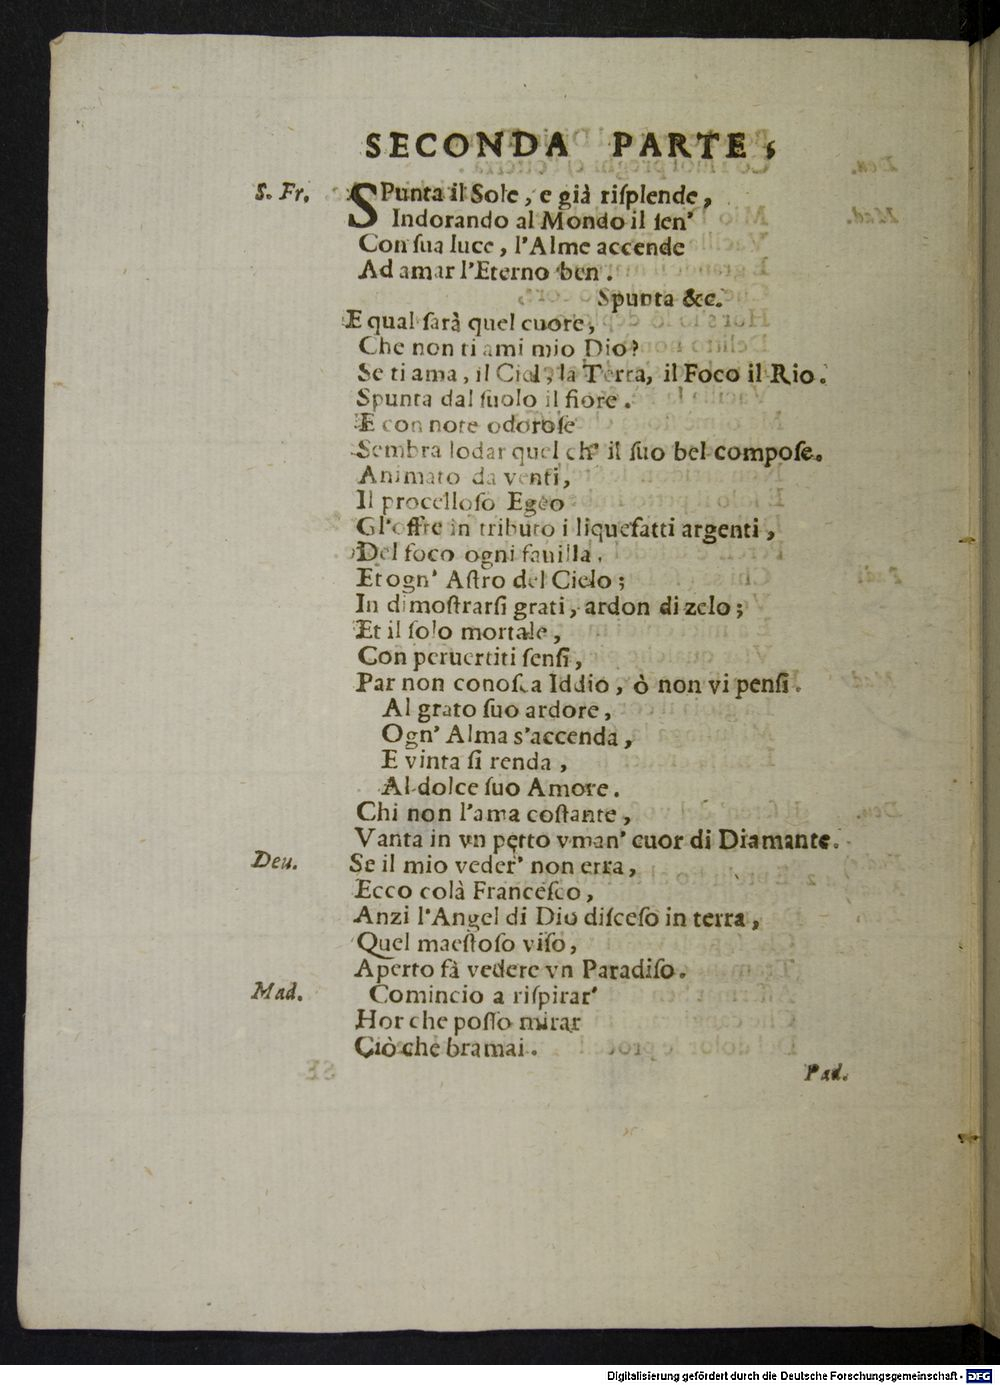 SECONDA PARTE,
S. Fr. SPunta il Sole, e già riſplende,
Indorando al Mondo il ſen'
Con ſua luce, l'Alme accende
Ad amar l'Eterno ben.
Spunta &c.
E qual ſarà quel cuore,
Che non ti ami mio Dio?
Se ti ama, il Ciel, la Terra, il Foco il Rio.
Spunta dal ſuolo il fiore.
E con note odoroſe
Sembra lodar quel ch' il ſuo bel compoſe.
Animato da venti,
Il procelloſo Egeo
Gl'offre in tributo i liquefatti argenti,
Del foco ogni fauilla.
Et ogn' Aſtro del Cielo;
In dimoſtrarſi grati, ardon di zelo;
Et il ſolo mortale,
Con peruertiti ſenſi,
Par non conoſca Iddio, ò non vi penſi.
Al grato ſuo ardore,
Ogn' Alma s'accenda,
E vinta ſi renda,
Al dolce ſuo Amore.
Chi non l'ama coſtante,
Vanta in vn petto vman' cuor di Diamante.
Deu. Se il mio veder' non erra,
Ecco colà Franceſco,
Anzi l'Angel di Dio diſceſo in terra,
Quel maeſtoſo viſo,
Aperto fà vedere vn Paradiſo.
Mad. Comincio a riſpirar'
Hor che poſſo mirar
Ciò che bramai.
Pad.
Digitalisierung gefördert durch die Deutsche Forschungsgemeinschaft - DFG